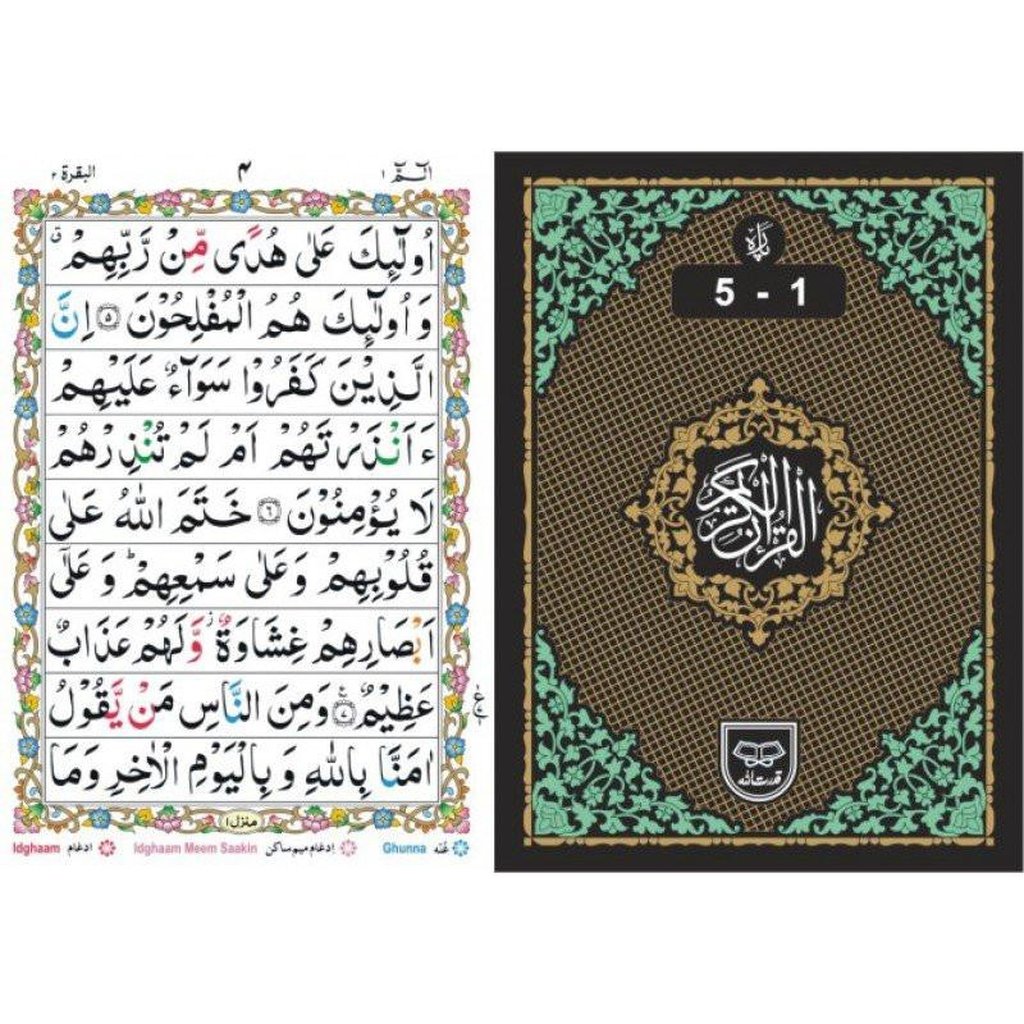 الٓـمّٓ ۱
۴
البقرة ۲
اُولٰٓئِكَ عَلٰى هُدًى مِّنْ رَّبِّهِمْ ق
وَ اُولٰٓئِكَ هُمُ الْمُفْلِحُوْنَ ۵ اِنَّ
الَّذِيْنَ كَفَرُوْا سَوَآءٌ عَلَيْهِمْ
ءَاَنْذَرْتَهُمْ اَمْ لَمْ تُنْذِرْهُمْ
لَا يُؤْمِنُوْنَ ۶ خَتَمَ اللّٰهُ عَلٰى
قُلُوْبِهِمْ وَ عَلٰى سَمْعِهِمْ ؕ وَ عَلٰٓى
اَبْصَارِهِمْ غِشَاوَةٌ ز وَّ لَهُمْ عَذَابٌ
عَظِيْمٌ ۷ وَ مِنَ النَّاسِ مَنْ يَّقُوْلُ
اٰمَنَّا بِاللّٰهِ وَ بِالْيَوْمِ الْاٰخِرِ وَ مَا
منزل ۱
Ghunna غُنّه
Idghaam Meem Saakin ادغام میم ساکن
Idghaam ادغام
پارہ
5 - 1
القرآن الكريم
قدرت الله